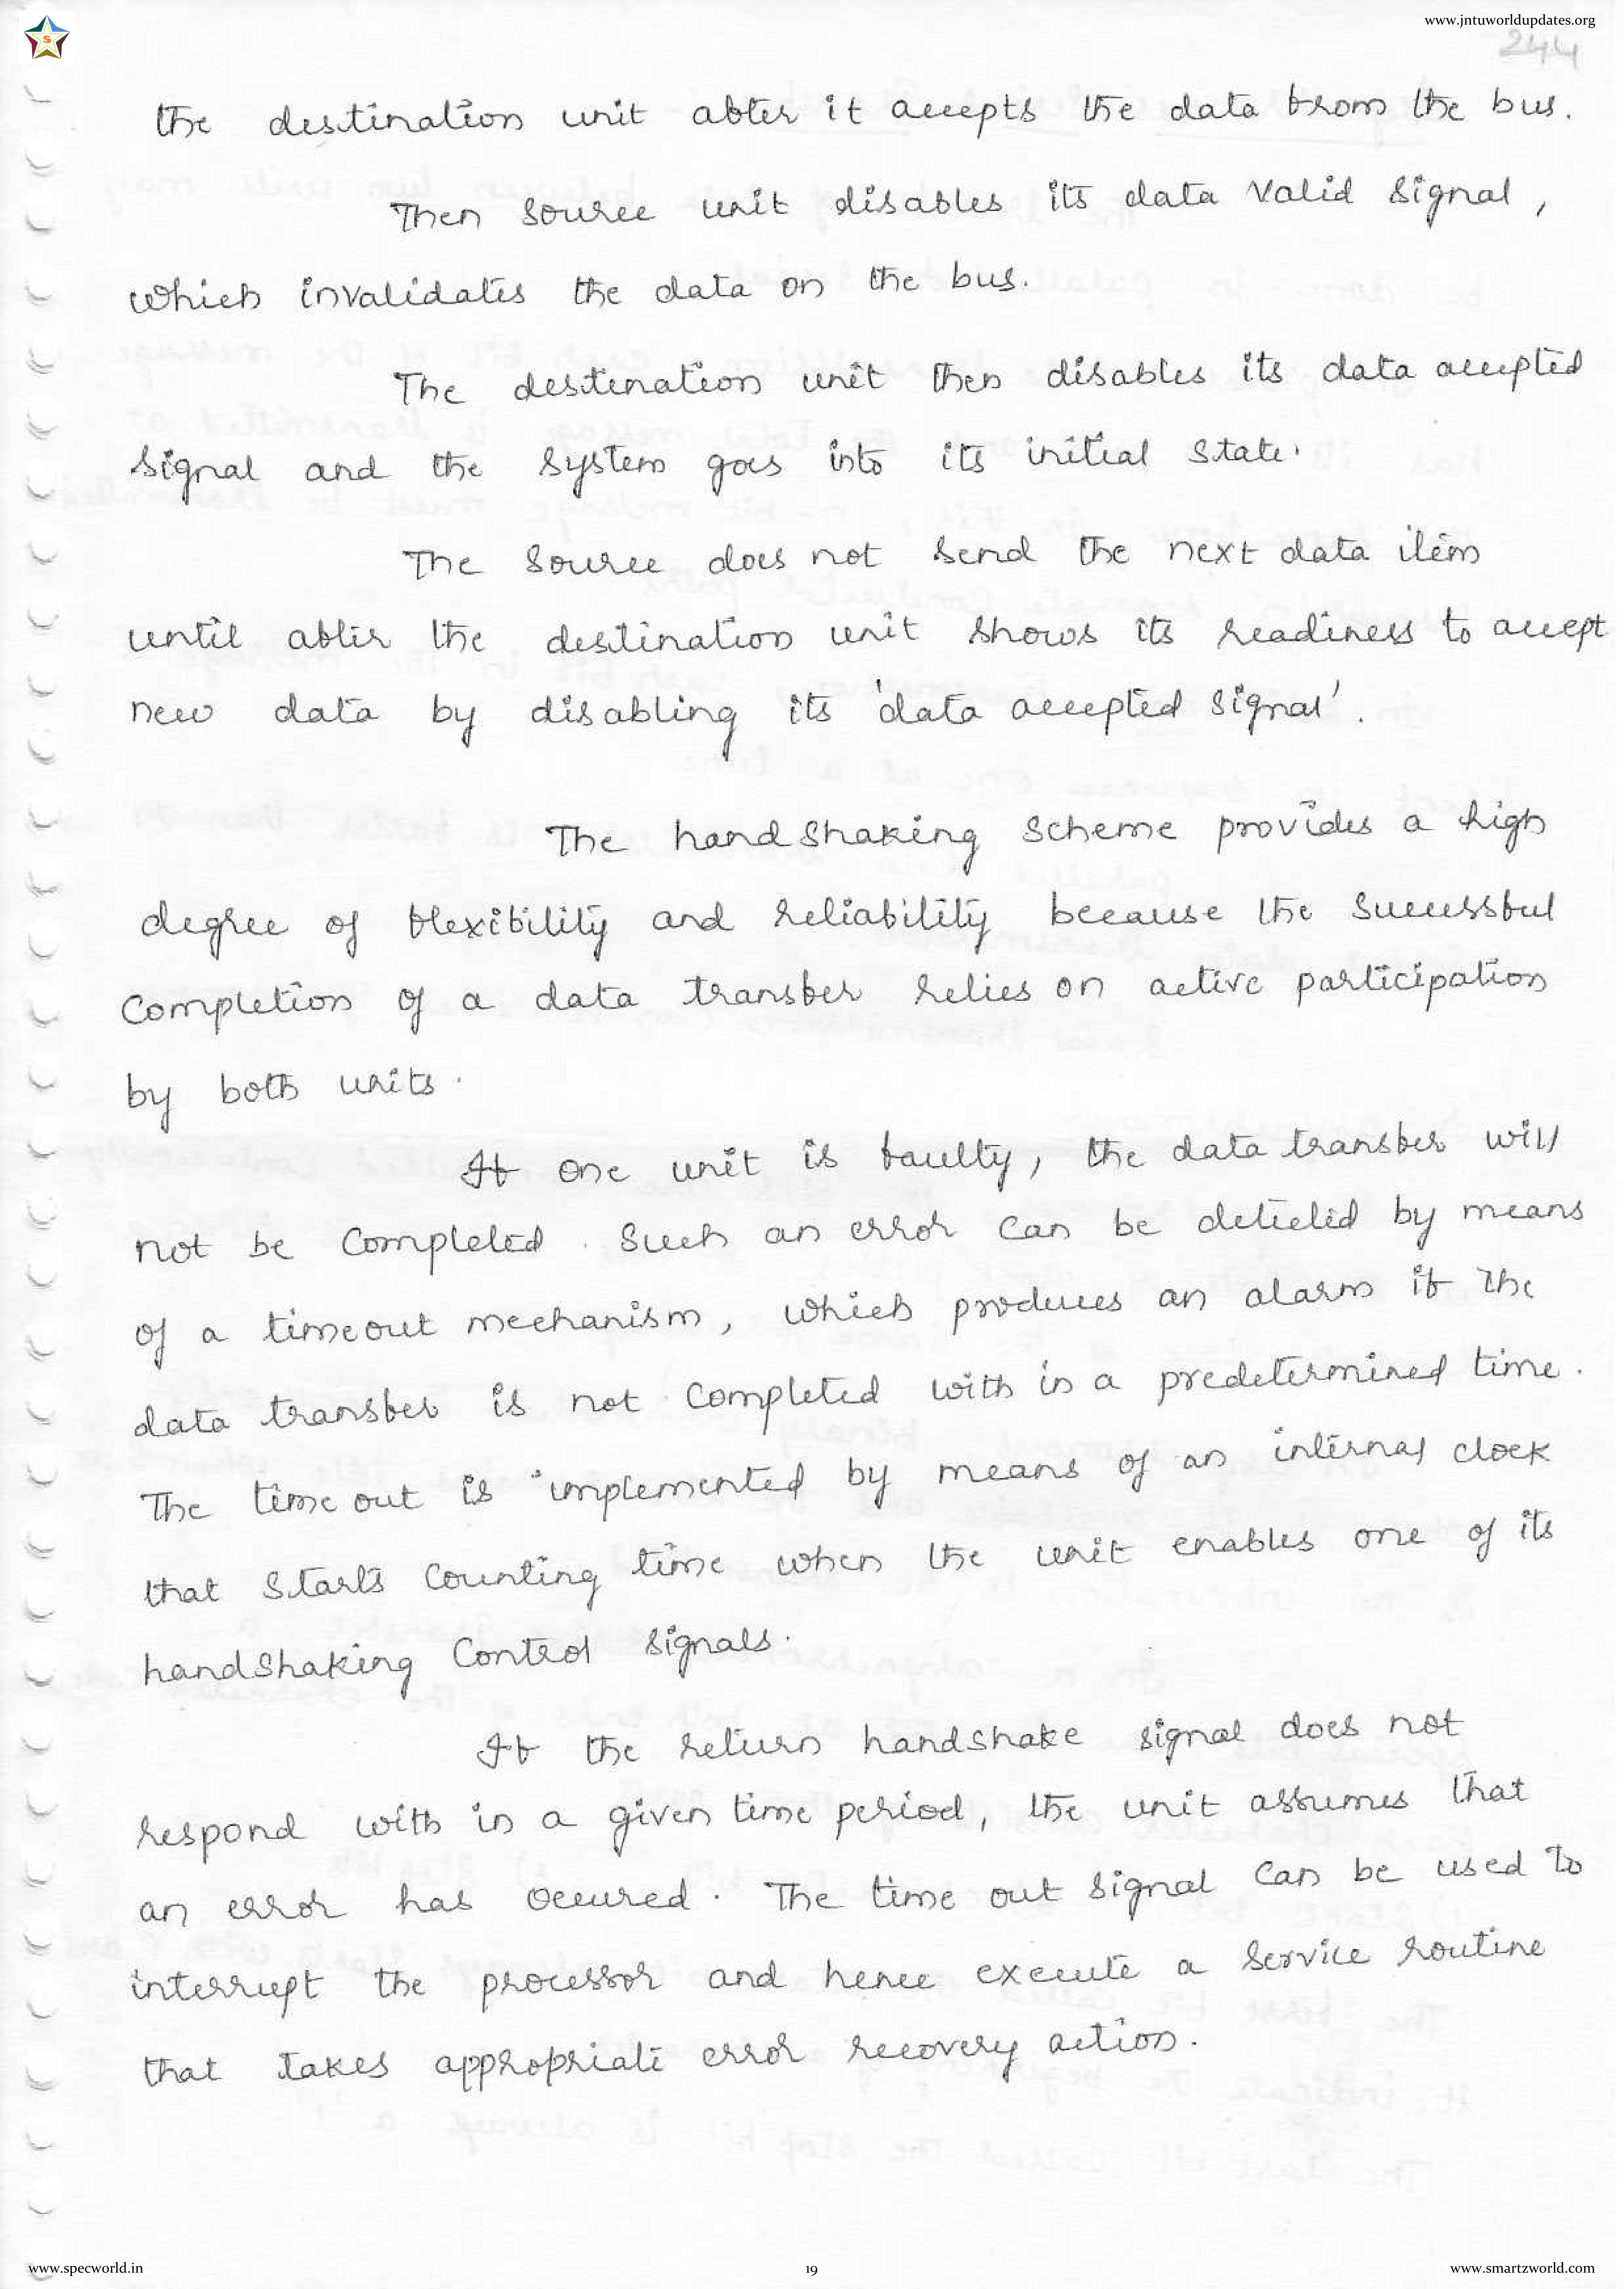 www.jntuworldupdates.org
244
the destination unit after it accepts the data from the bus.
Then source unit disables its data valid signal,
which invalidates the data on the bus.
The destination unit then disables its data accepted
signal and the system goes into its initial state.
The source does not send the next data item
until after the destination unit shows its readiness to accept
new data by disabling its 'data accepted signal'.
The handshaking scheme provides a high
degree of flexibility and reliability because the successful
completion of a data transfer relies on active participation
by both units.
If one unit is faulty, the data transfer will
not be completed. Such an error can be detected by means
of a timeout mechanism, which produces an alarm if the
data transfer is not completed with in a predetermined time.
The time out is implemented by means of an internal clock
that starts counting time when the unit enables one of its
handshaking control signals.
If the return handshake signal does not
respond with in a given time period, the unit assumes that
an error has occured. The time out signal can be used to
interrupt the processor and hence execute a service routine
that takes appropriate error recovery action.
www.specworld.in
19
www.smartzworld.com